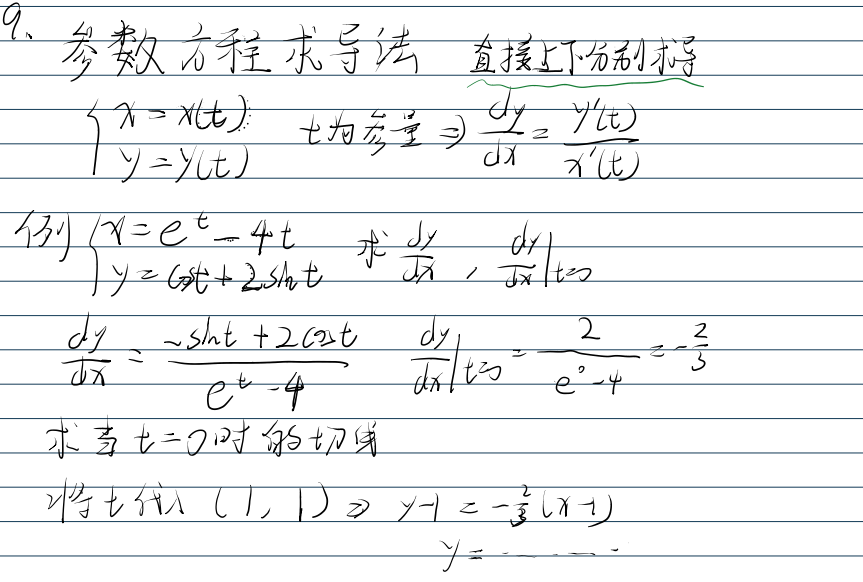 9、参数方程求导法 直接上下分别求导
{x = x(t) y = y(t) t为参量 ⇒ dy/dx = y'(t)/x'(t)
例 {x = e^t - 4t y = cost + 2sint 求 dy/dx , dy/dx|t=0
dy/dx = (-sint + 2cost)/(e^t - 4) dy/dx|t=0 = 2/(e^0 - 4) = -2/3
求当t=0时的切线
将t代入 (1, 1) ⇒ y-1 = -2/3(x-1)
y = ......